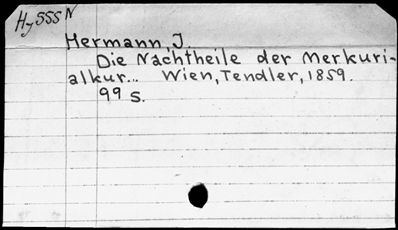 Hy 555 N
Hermann, J.
Die Nachtheile der Merkuri-
alkur... Wien, Tendler, 1859.
99 S.